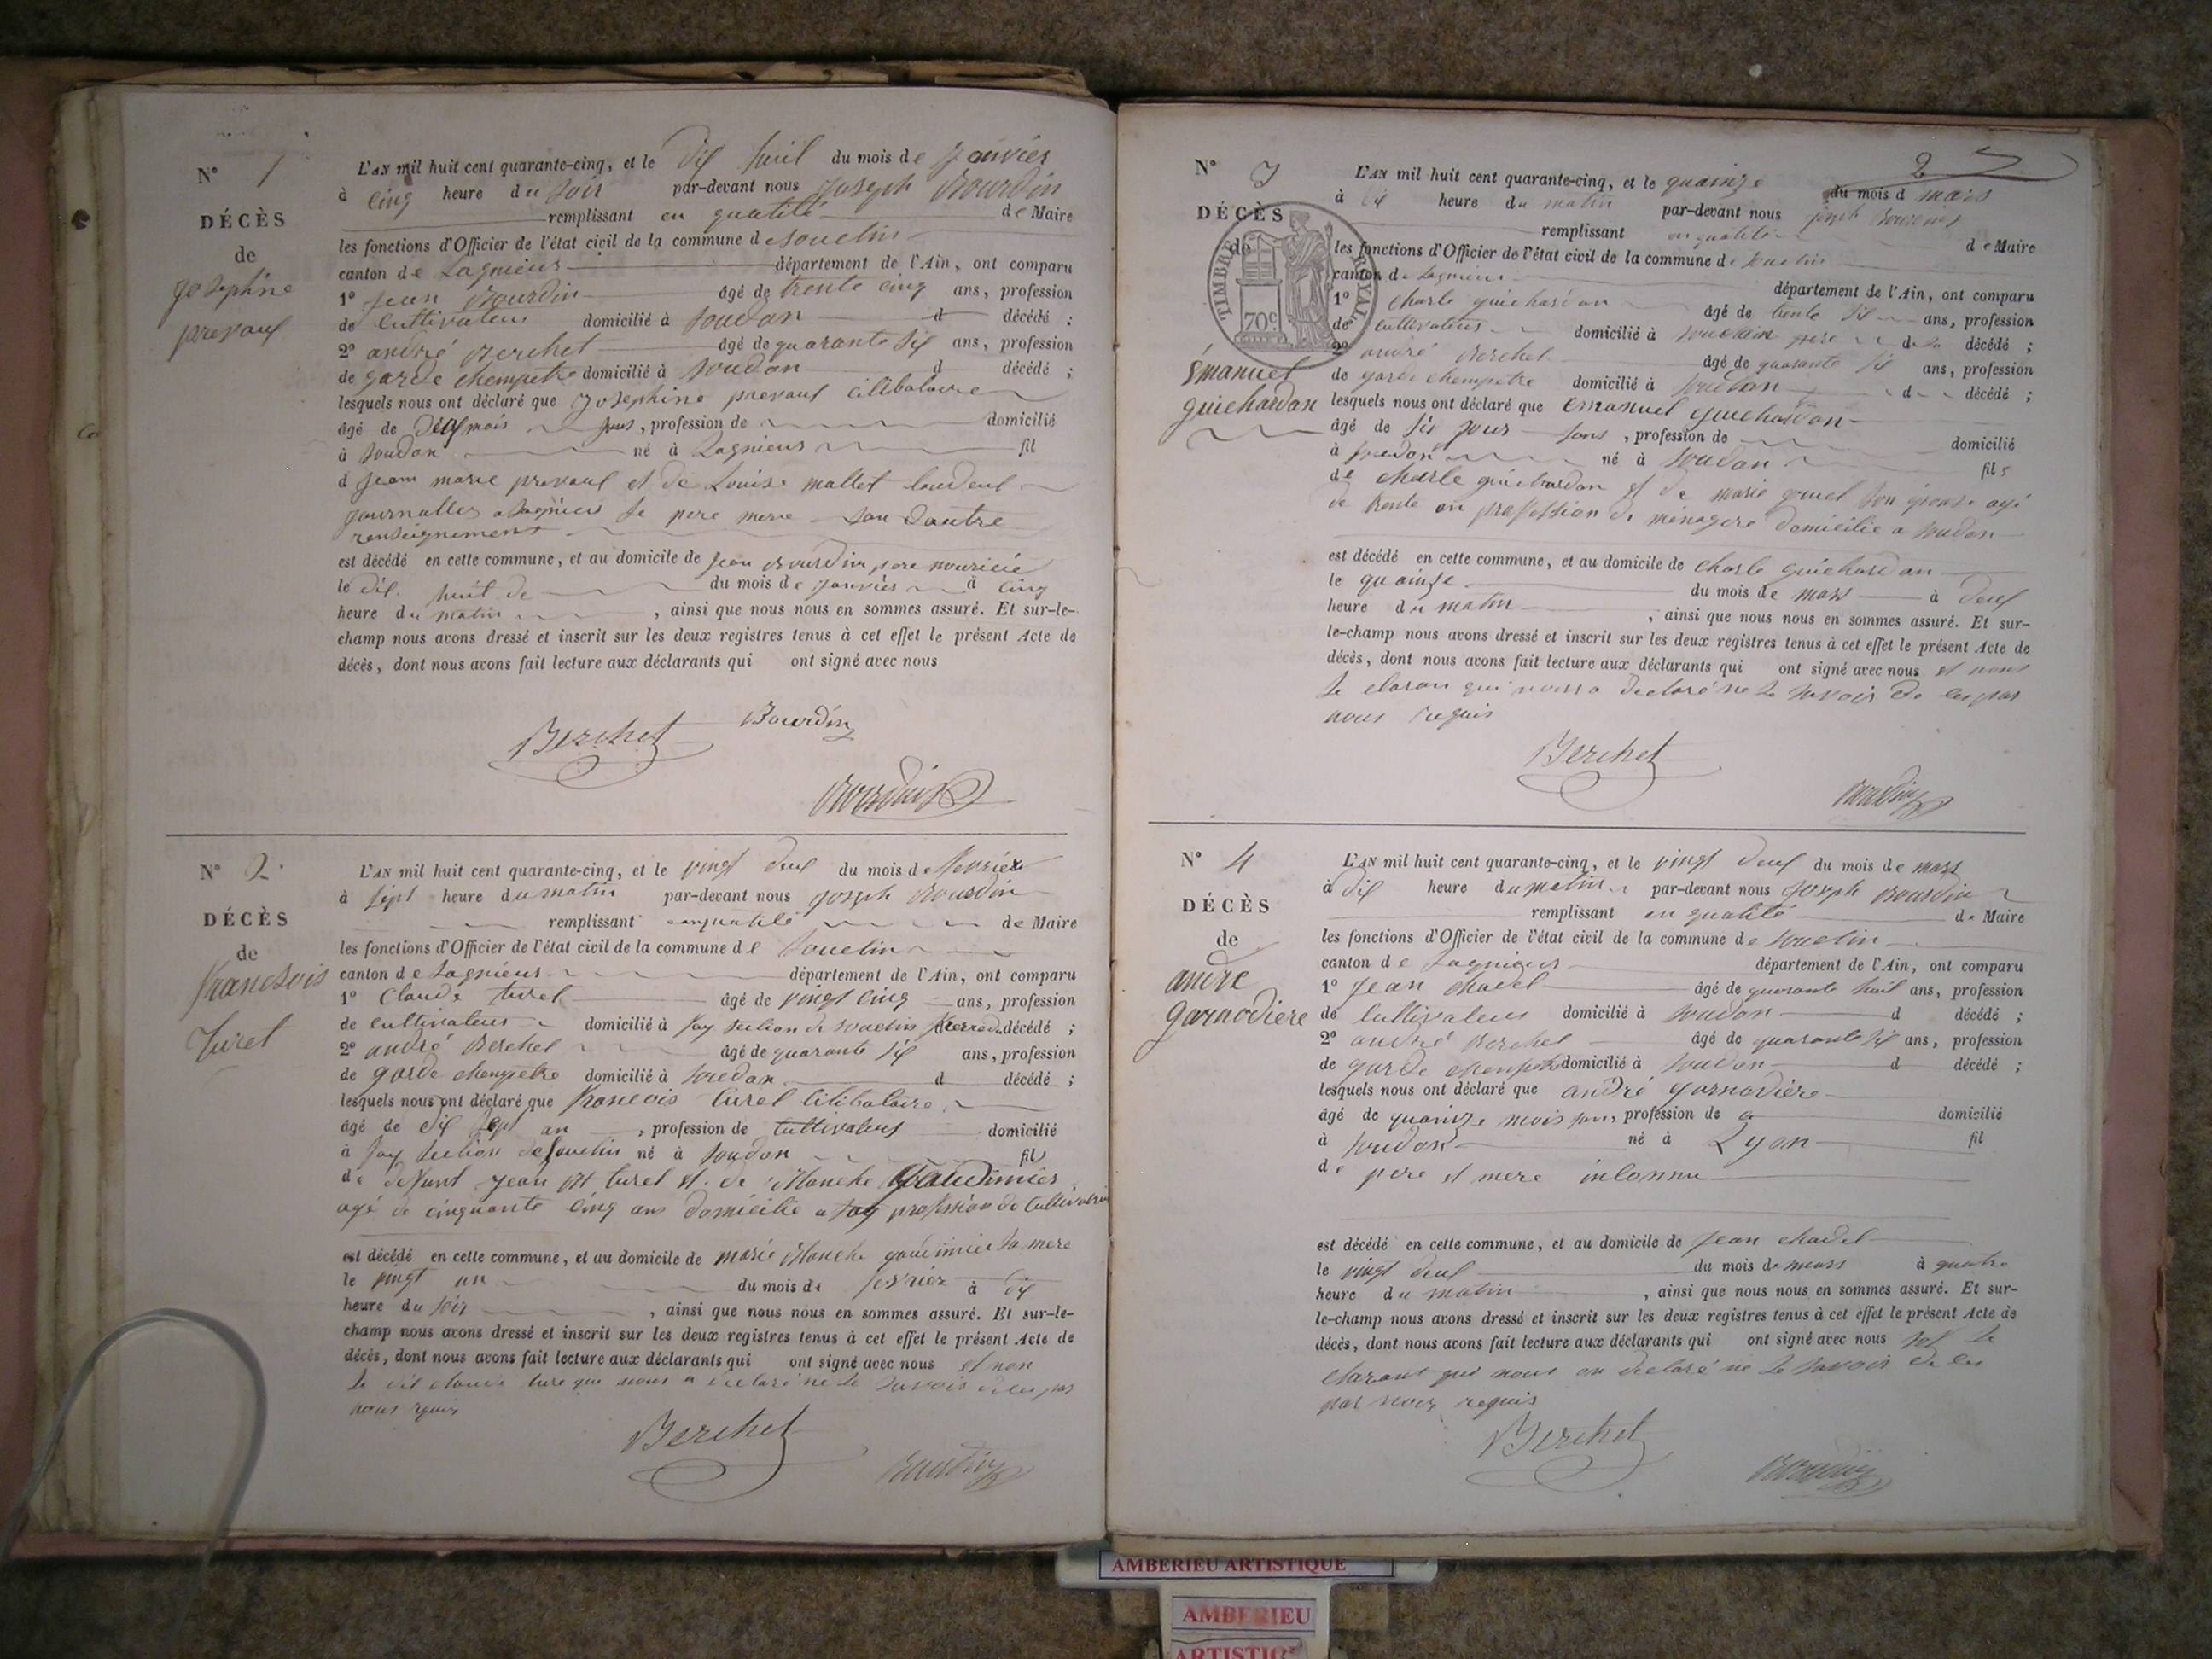 N° 1
DÉCÈS
de
Josephine
prevaux
L'AN mil huit cent quarante-cinq, et le dix huit du mois de Janvier
à cinq heure du soir par-devant nous Joseph Bourdin
remplissant en qualité de Maire
les fonctions d'Officier de l'état civil de la commune de souclin
canton de Lagnieux département de l'Ain, ont comparu
1° Jean Bourdin âgé de trente cinq ans, profession
de Cultivateur domicilié à soudon d décédé ;
2° andré Berchet âgé de quarante six ans, profession
de garde chempetre domicilié à soudon d décédé ;
lesquels nous ont déclaré que Josephine prevaux célibataire
âgé de mois, profession de domicilié
à soudon né à Lagnieux fil
d Jean marie prevaux et de Louise mallet
a Lagnieu pere mere san dautre
renseignement
est décédé en cette commune, et au domicile de Jean Bourdin pere nouricié
le dix huit de du mois de janvier à cinq
heure du matin, ainsi que nous nous en sommes assuré. Et sur-le-
champ nous avons dressé et inscrit sur les deux registres tenus à cet effet le présent Acte de
décès, dont nous avons fait lecture aux déclarants qui ont signé avec nous
Berchet Bourdin
Bourdin
N° 2
DÉCÈS
de
francsois
Turet
L'AN mil huit cent quarante-cinq, et le vingt deux du mois de fevrier
à sept heure du matin par-devant nous joseph Bourdin
remplissant enqualité de Maire
les fonctions d'Officier de l'état civil de la commune de souclin
canton de Lagnieux département de l'Ain, ont comparu
1° Claude turet âgé de vingt cinq ans, profession
de cultivateur domicilié à fay section de souclin décédé ;
2° andré Berchet âgé de quarante six ans, profession
de garde chempetre domicilié à soudon d décédé ;
lesquels nous ont déclaré que francois turet
âgé de dix sept an, profession de cultivateur domicilié
à fay section de souclin né à soudon fil
de defunt jean turet et de Blanche
agé de cinquante cinq ans domicilié a fay profession de
est décédé en cette commune, et au domicile de marie Blanche sa mere
le vingt un du mois de fevrier à dix
heure du soir, ainsi que nous nous en sommes assuré. Et sur-le-
champ nous avons dressé et inscrit sur les deux registres tenus à cet effet le présent Acte de
décès, dont nous avons fait lecture aux déclarants qui ont signé avec nous et non
le dit claude que nous a declaré ne le savoir de par
nous requis
Berchet Bourdin
2
N° 3
DÉCÈS
de
TIMBRE ROYAL
70c
Émanuel
guichardan
L'AN mil huit cent quarante-cinq, et le quainze du mois d mars
à dix heure du matin par-devant nous joseph Bourdin
remplissant en qualité de Maire
les fonctions d'Officier de l'état civil de la commune de souclin
canton de Lagnieu département de l'Ain, ont comparu
1° Charle guichardan âgé de trente six ans, profession
de cultivateur domicilié à pere décédé ;
2° andré Berchet âgé de quarante six ans, profession
de garde chempetre domicilié à soudon d décédé ;
lesquels nous ont déclaré que Emanuel guichardon
âgé de six jour, profession de domicilié
à soudon né à soudon fils
de charle guichardan et de marie son épouse agé
de trente an profession de ménagere domicilié a soudon
est décédé en cette commune, et au domicile de charle guichardan
le quainze du mois de mars à deux
heure du matin, ainsi que nous nous en sommes assuré. Et sur-
le-champ nous avons dressé et inscrit sur les deux registres tenus à cet effet le présent Acte de
décès, dont nous avons fait lecture aux déclarants qui ont signé avec nous et nous
le claran qui nous a declaré ne le savoir de par
nous requis
Berchet
Bourdin
N° 4
DÉCÈS
de
andre
garnodiere
L'AN mil huit cent quarante-cinq, et le vingt deux du mois de mars
à dix heure du matin par-devant nous joseph Bourdin
remplissant en qualité de Maire
les fonctions d'Officier de l'état civil de la commune de souclin
canton de Lagnieux département de l'Ain, ont comparu
1° Jean chadel âgé de quarante huit ans, profession
de cultivateur domicilié à soudon d décédé ;
2° andré Berchet âgé de quarante six ans, profession
de garde chempetre domicilié à soudon d décédé ;
lesquels nous ont déclaré que andré garnodiere
âgé de quainze mois, profession de domicilié
à soudon né à Lyon fil
de pere et mere inconnu
est décédé en cette commune, et au domicile de jean chadel
le vingt deux du mois de mars à quatre
heure du matin, ainsi que nous nous en sommes assuré. Et sur-
le-champ nous avons dressé et inscrit sur les deux registres tenus à cet effet le présent Acte de
décès, dont nous avons fait lecture aux déclarants qui ont signé avec nous le
clarant qui nous on declaré ne le savoir de
par nous requis
Berchet
Bourdin
AMBERIEU ARTISTIQUE
AMBERIEU